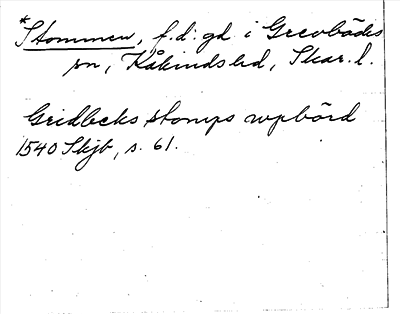 *Stommen, f.d. gd i Grevbäcks
sn, Kåkinds hd, Skar. l.
Gridbecks stomps vpbörd
1540 Skjb, s. 61.